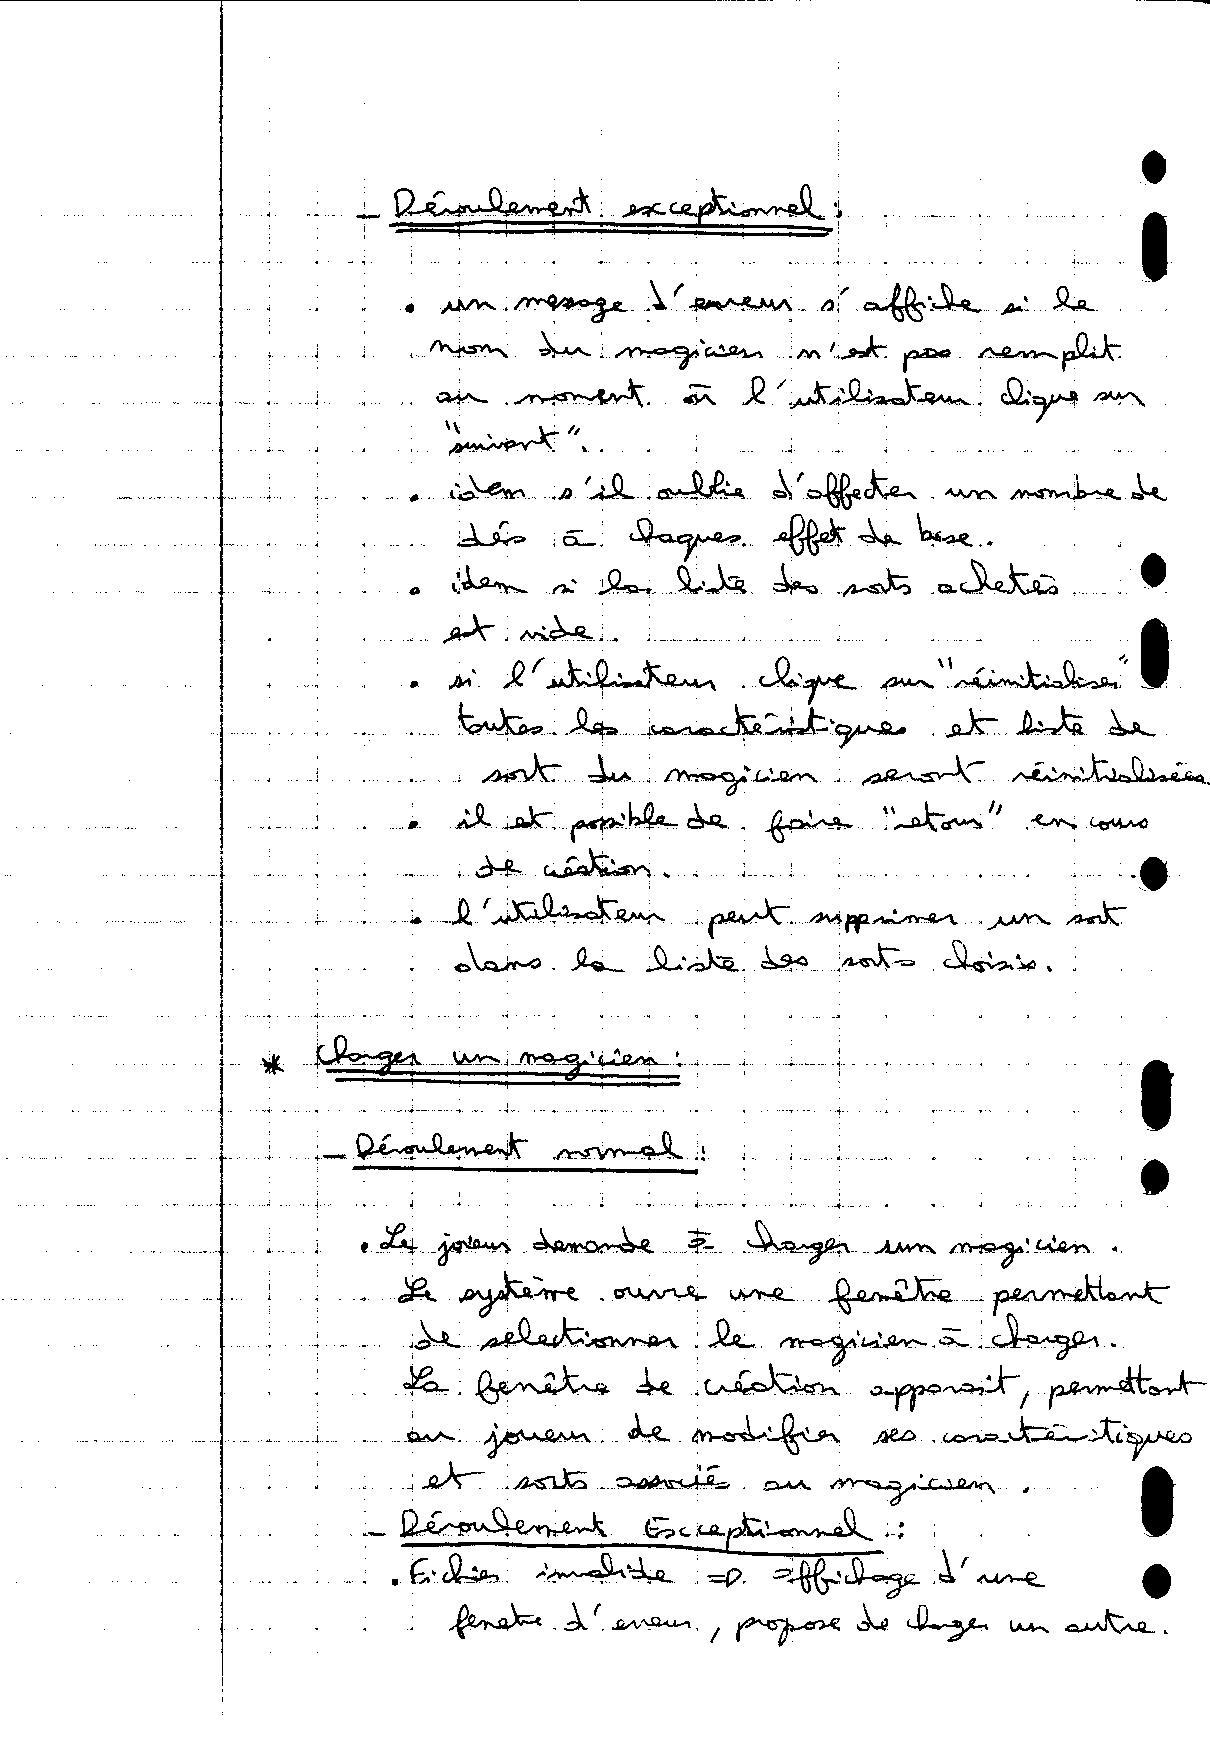 _ Déroulement exceptionnel :
• un message d'erreur s'affiche si le
nom du magicien n'est pas remplit
au moment où l'utilisateur clique sur
"suivant".
• idem s'il oublie d'affecter un nombre de
dés à chaques effet de base.
• idem si la liste des sorts achetés
est vide.
• si l'utilisateur clique sur "réinitialiser"
toutes les caractéristiques et liste de
sort du magicien seront réinitialisées
• il est possible de faire "retour" en cours
de création.
• l'utilisateur peut supprimer un sort
dans la liste des sorts choisis.
* Charger un magicien :
_ Déroulement normal :
• Le joueur demande à charger un magicien.
Le système ouvre une fenêtre permettant
de selectionner le magicien à charger.
La fenêtre de création apparait, permettant
au joueur de modifier ses caractéristiques
et sorts associé au magicien.
_ Déroulement Exceptionnel :
• Fichier invalide => affichage d'une
fenetre d'erreur, propose de charger un autre.